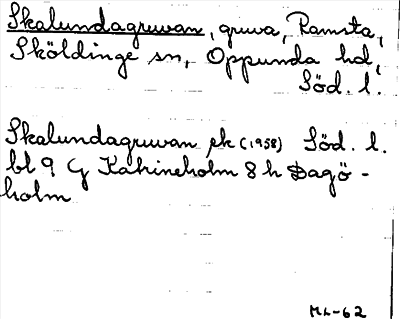 Skalundagruvan, gruva, Ramsta,
Sköldinge sn, Oppunda hd,
Söd. l.
Skalundagruvan ek (1958) Söd. l.
bl 9 G Katrineholm 8 h Dagö-
holm
ML-62